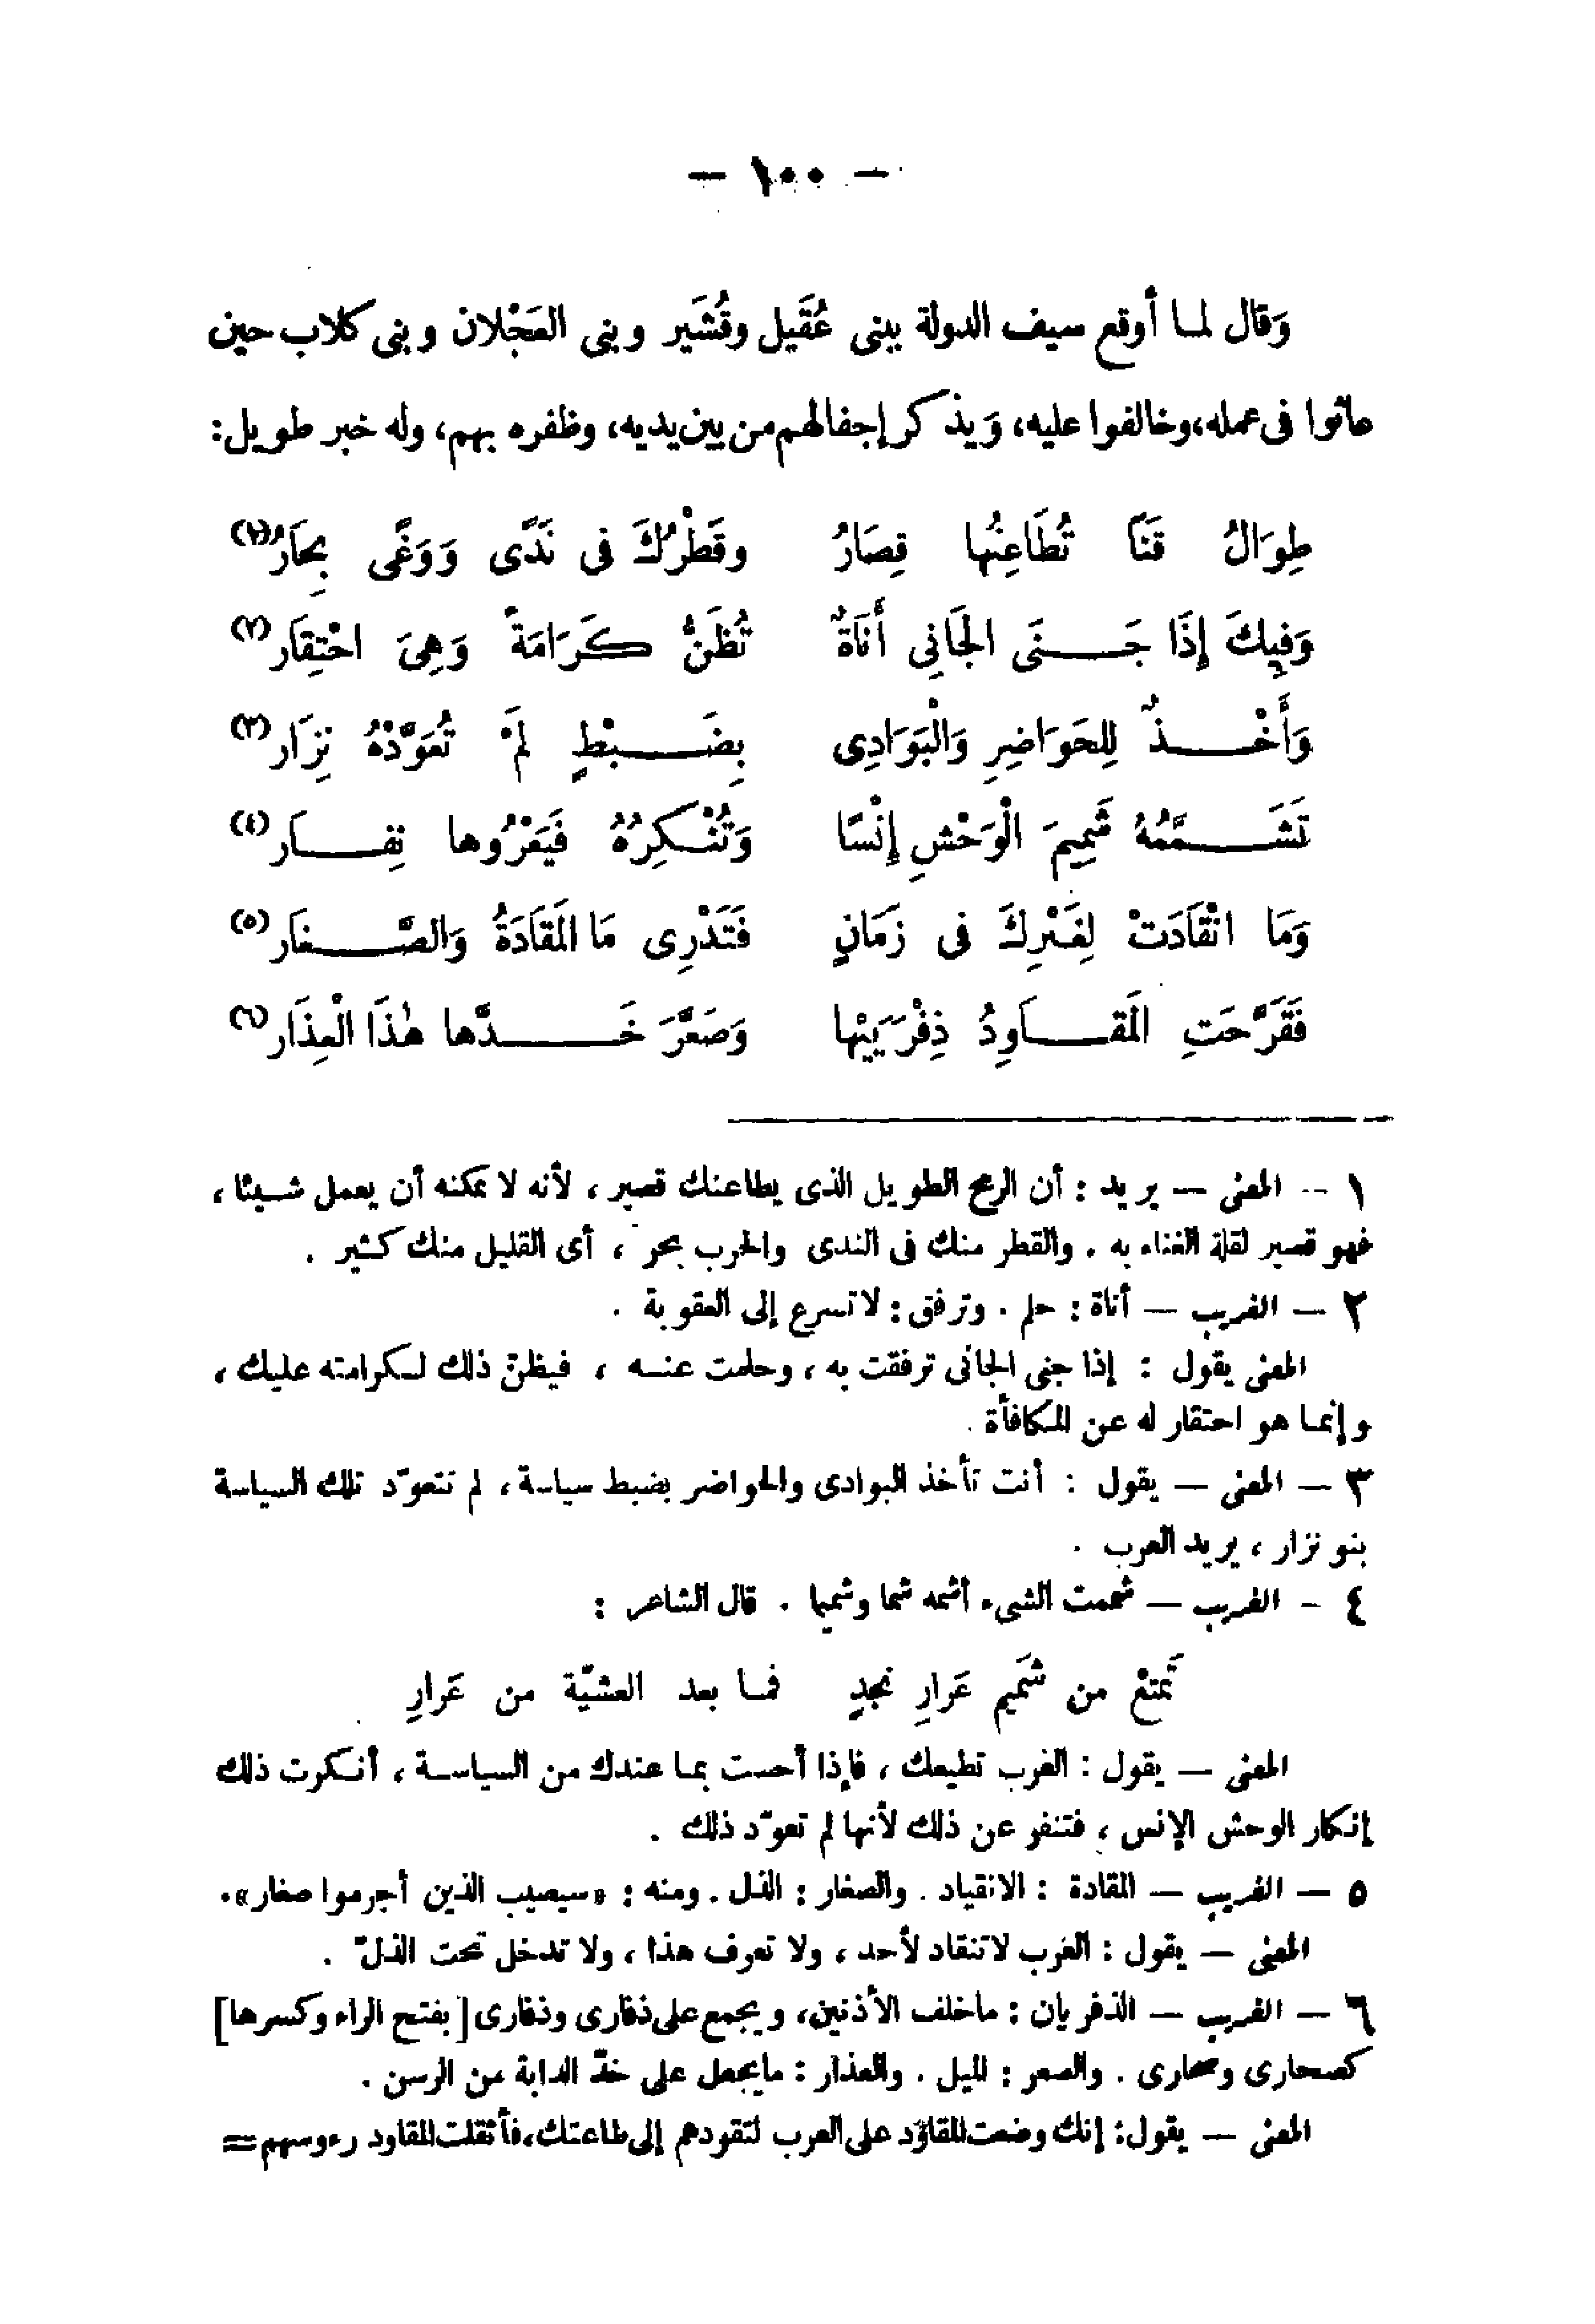 — ١٠٠ —
وَقال لمـا أوقع سيف الدولة ببنى عُقَيل وقُشَير وبنى العَجْلان وبنى كلاب حين
عاثوا فى عمله، وخالفوا عليه، وَيذكر إجفالهم من بين يديه، وظفره بهم، وله خبر طويل:
طِوَالُ قَنًا تُطَاعِنُها قِصَارُ وقَطْرُكَ فى نَدًى وَوَغًى بِحَارُ(١)
وَفِيكَ إِذَا جَـــنَى الجَانِى أَنَاةٌ تُظَنُّ كَرَامَةً وَهِىَ احْتِقَار(٢)
وَأَخْـــذٌ لِلحَوَاضِرِ وَالْبَوَادِى بِضَـــبْطٍ لَمْ تُعَوَّدْهُ نِزَار(٣)
تَشَـــمَّمُهُ شَمِيمَ الْوَحْشِ إِنْسًا وَتُنْـكِرُهُ فَيَعْرُوها نِفَـــار(٤)
وَمَا انْقَادَتْ لِغَيْرِكَ فى زَمَانٍ فَتَدْرِى مَا المَقَادَةُ وَالصَّـــغَار(٥)
فَقَرَّحَتِ المَقَـــاوِدُ ذِفْرَيَيْها وَصَعَّرَ خَـــدَّها هٰذَا الْعِذَار(٦)
١ -- المعنى — يريد : أن الرمح الطويل الذى يطاعنك قصير ، لأنه لا يمكنه أن يعمل شـيئا ،
فهو قصير لقلة الغناء به . والقطر منك فى الندى والحرب بحر ، أى القليل منك كـثير .
٢ — الغريب — أناة : حلم . وترفق : لا تسرع إلى العقوبة .
المعنى يقول : إذا جنى الجانى ترفقت به ، وحلمت عنـه ، فيظنّ ذلك لـكرامته عليك ،
وإنمـا هو احتقار له عن المـكافأة .
٣ — المعنى — يقول : أنت تأخذ البوادى والحواضر بضبط سياسة ، لم تتعوّد تلك السياسة
بنو نزار ، يريد العرب .
٤ - الغريب — شممت الشىء أشمه شما وشميما . قال الشاعر :
تَمتعْ من شَميمِ عَرارِ نجدٍ فمـا بعد العشيّة من عَرارِ
المعنى — يقول : العرب تطيعك ، فإذا أحست بمـا عندك من السياسـة ، أنـكرت ذلك
إنـكار الوحش الإنس ، فتنفر عن ذلك لأنها لم تعوّد ذلك .
٥ — الغريب — المقادة : الانقياد . والصغار : الذل . ومنه : «سيصيب الذين أجرموا صغار» .
المعنى — يقول : العرب لا تنقاد لأحد ، ولا تعرف هذا ، ولا تدخل تحت الذلّ .
٦ — الغريب — الذفريان : ماخلف الأذنين، ويجمع على ذفارى وذفارى [بفتح الراء وكسرها]
كصحارى وصحارى . والصعر : الميل . والعذار : مايجعل على خدّ الدابة من الرسن .
المعنى — يقول: إنك وضعت المقاود على العرب لتقودهم إلى طاعتك، فأثقلت المقاود رءوسهم =